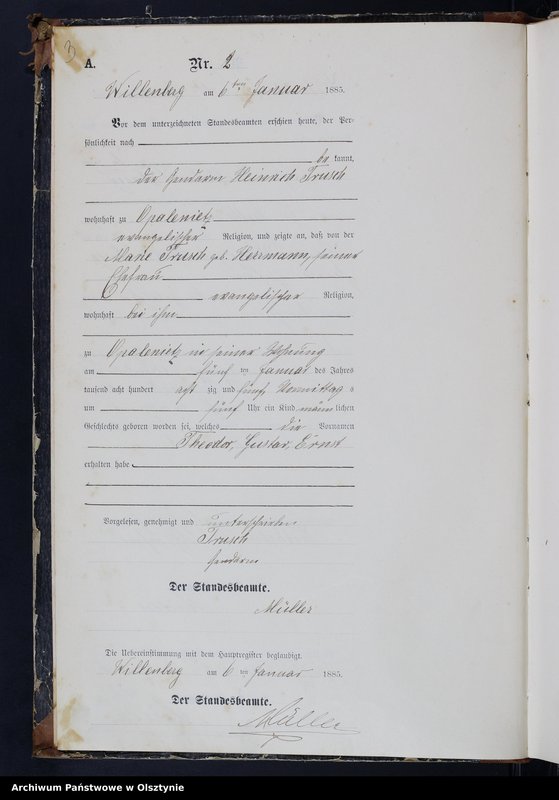 3
A. Nr. 2
Willenberg am 6 ten Januar 1885.
Vor dem unterzeichneten Standesbeamten erschien heute, der Per-
sönlichkeit nach
be kannt,
der Gendarm Heinrich Trusch
wohnhaft zu Opalenietz
evangelischer Religion, und zeigte an, daß von der
Marie Trusch geb. Herrmann, seiner
Ehefrau
evangelischer Religion,
wohnhaft bei ihm
zu Opalenietz in seiner Wohnung
am fünf ten Januar des Jahres
tausend acht hundert acht zig und fünf Vormittag s
um fünf Uhr ein Kind männ lichen
Geschlechts geboren worden sei, welches die Vornamen
Theodor, Gustav, Ernst
erhalten habe
Vorgelesen, genehmigt und unterschrieben
Trusch
Gendarm
Der Standesbeamte.
Müller
Die Uebereinstimmung mit dem Hauptregister beglaubigt.
Willenberg am 6 ten Januar 1885.
Der Standesbeamte.
Müller
Archiwum Państwowe w Olsztynie